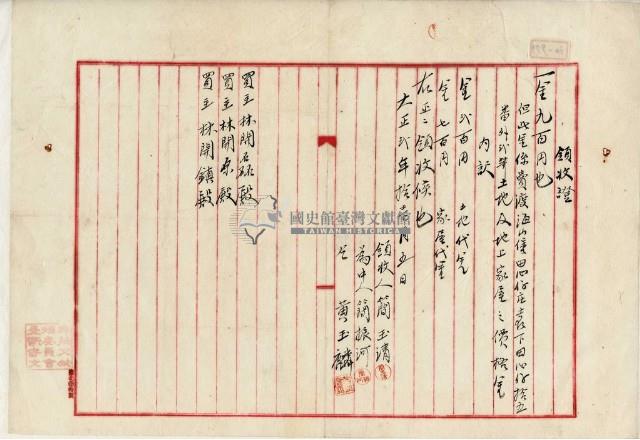 領收證
一金九百円也
但此金係賣渡海山堡田心仔庄土名下田心仔拾五
番外弍筆土地及地上家屋之價格金
內訳
金弍百円 土地代金
金七百円 家屋代金
右正ニ領收候也
大正弍年拾月五日
領收人簡玉清
為中人簡振河
仝 黃玉麟
買主林開祿殿
買主林開泰殿
買主林開鎮殿
國史館臺灣文獻館
TAIWAN HISTORICA